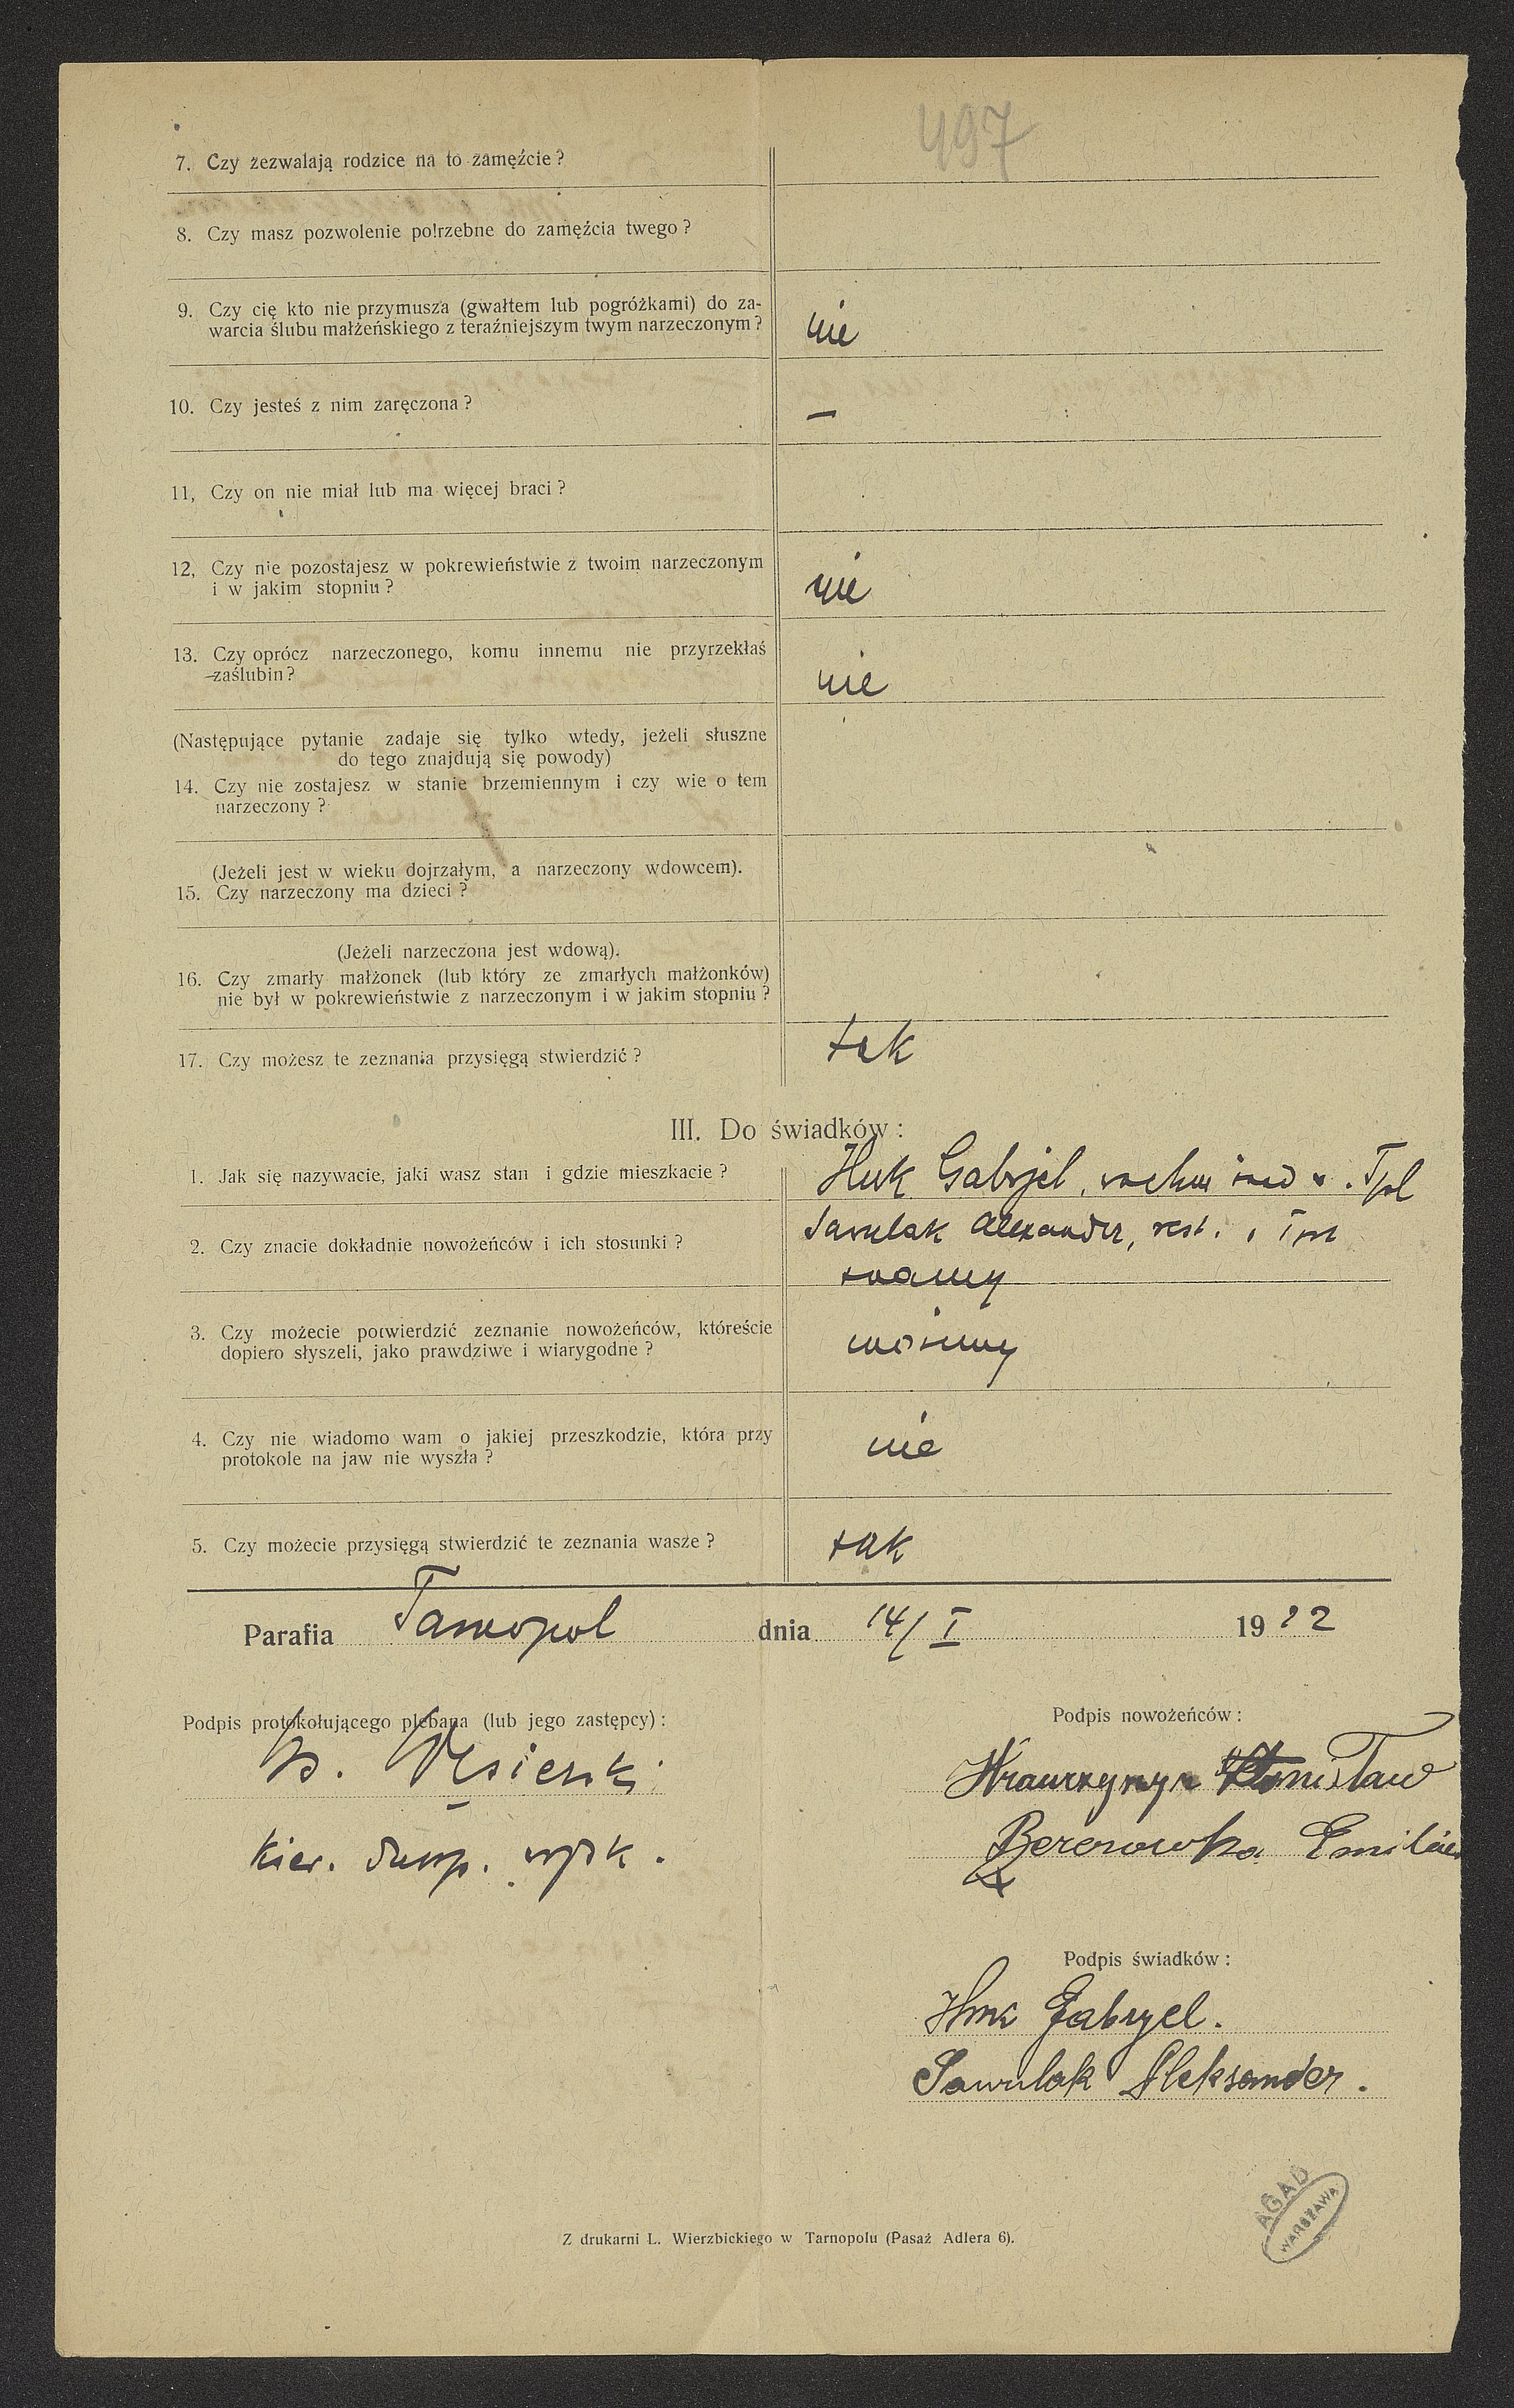 497
7. Czy zezwalają rodzice na to zamęźcie?
8. Czy masz pozwolenie potrzebne do zamęźcia twego?
9. Czy cię kto nie przymusza (gwałtem lub pogróżkami) do za-
warcia ślubu małżeńskiego z teraźniejszym twym narzeczonym?
nie
10. Czy jesteś z nim zaręczona?
—
11, Czy on nie miał lub ma więcej braci?
12, Czy nie pozostajesz w pokrewieństwie z twoim narzeczonym
i w jakim stopniu?
nie
13. Czy oprócz narzeczonego, komu innemu nie przyrzekłaś
zaślubin?
nie
(Następujące pytanie zadaje się tylko wtedy, jeżeli słuszne
do tego znajdują się powody)
14. Czy nie zostajesz w stanie brzemiennym i czy wie o tem
narzeczony?
(Jeżeli jest w wieku dojrzałym, a narzeczony wdowcem).
15. Czy narzeczony ma dzieci?
(Jeżeli narzeczona jest wdową).
16. Czy zmarły małżonek (lub który ze zmarłych małżonków)
nie był w pokrewieństwie z narzeczonym i w jakim stopniu?
17. Czy możesz te zeznania przysięgą stwierdzić?
tak
III. Do świadków:
1. Jak się nazywacie, jaki wasz stan i gdzie mieszkacie?
Huk Gabrjel, Tpl
Sawulak Alexander,
2. Czy znacie dokładnie nowożeńców i ich stosunki?
znamy
3. Czy możecie potwierdzić zeznanie nowożeńców, któreście
dopiero słyszeli, jako prawdziwe i wiarygodne?
możemy
4. Czy nie wiadomo wam o jakiej przeszkodzie, która przy
protokole na jaw nie wyszła?
nie
5. Czy możecie przysięgą stwierdzić te zeznania wasze?
tak
Parafia Tarnopol dnia 14/I 19
Podpis protokołującego plebana (lub jego zastępcy):
Kier. dusp. wojsk.
Podpis nowożeńców:
Stanisław
Emilia
Podpis świadków:
Huk Gabryel.
Sawulak Aleksander.
AGAD
WARSZAWA
Z drukarni L. Wierzbickiego w Tarnopolu (Pasaż Adlera 6).